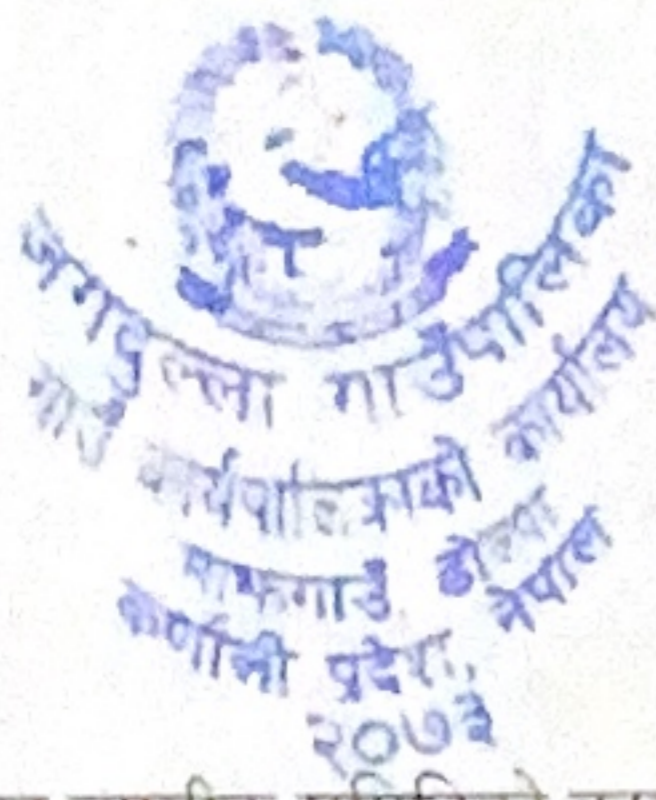 जगदुल्ला गाउँपालिका
गाउँ कार्यपालिकाको कार्यालय
माझगाउँ डोल्पा
कर्णाली प्रदेश, नेपाल
२०७३